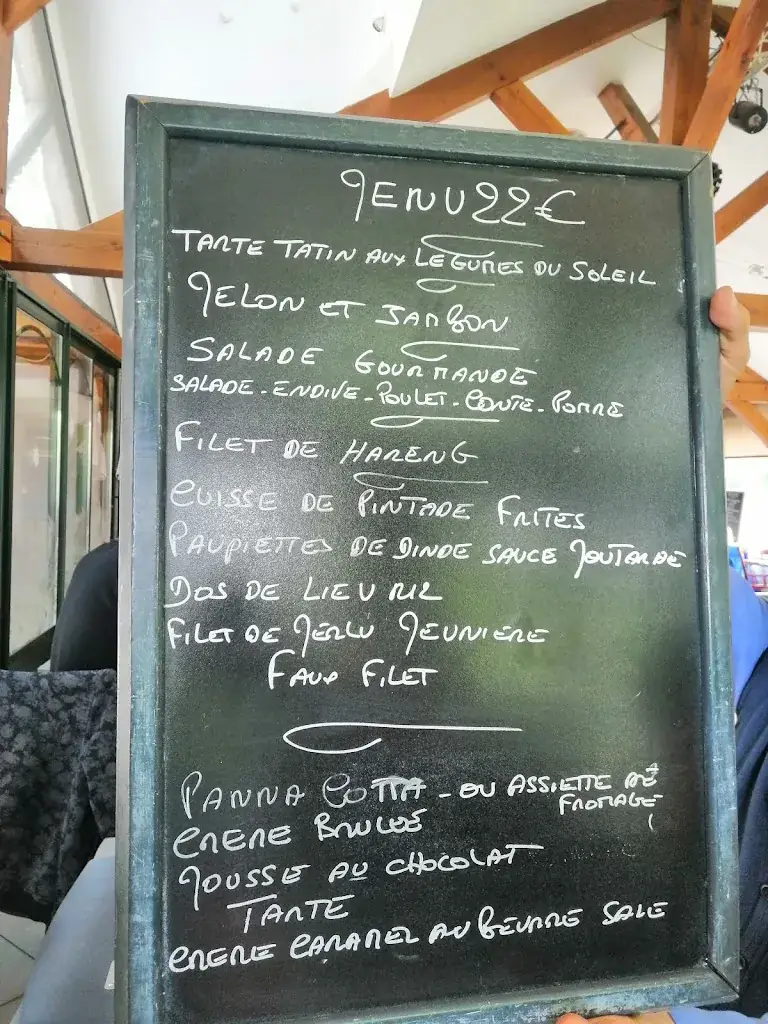 MENU 22€
TARTE TATIN AUX LEGUMES DU SOLEIL
MELON ET JAMBON
SALADE GOURMANDE
SALADE - ENDIVE - POULET - COMTE - POMME
FILET DE HARENG
CUISSE DE PINTADE FRITES
PAUPIETTES DE DINDE SAUCE MOUTARDE
DOS DE LIEU
FILET DE MERLU MEUNIERE
FAUX FILET
PANNA COTTA - OU ASSIETTE DE
FROMAGE
CREME BRULEE
MOUSSE AU CHOCOLAT
TARTE
CREME CARAMEL AU BEURRE SALE